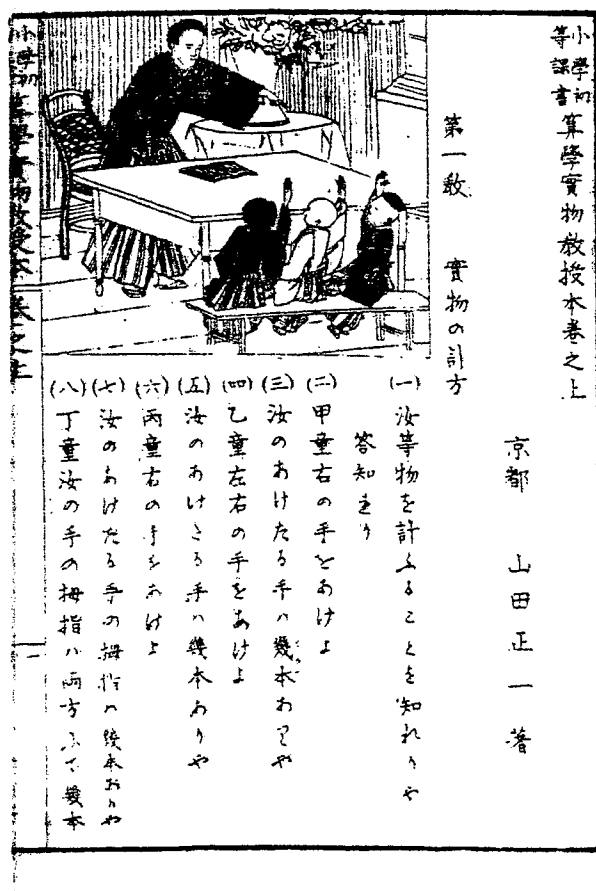 小學初等課書 算學實物教授本巻之上
京都 山田正一著
第一教 實物の計方
(一)汝等物を計ふることを知れりや
答知を
(二)甲童右の手をあけよ
(三)汝のあけたる手ハ幾本ありや
(四)乙童左右の手をあけよ
(五)汝のあけたる手ハ幾本ありや
(六)丙童右の手をあけよ
(七)汝のあけたる手の拇指ハ幾本ありや
(八)丁童汝の手の拇指ハ両方ふて幾本
小學初 算學實物教授本 巻之上
一